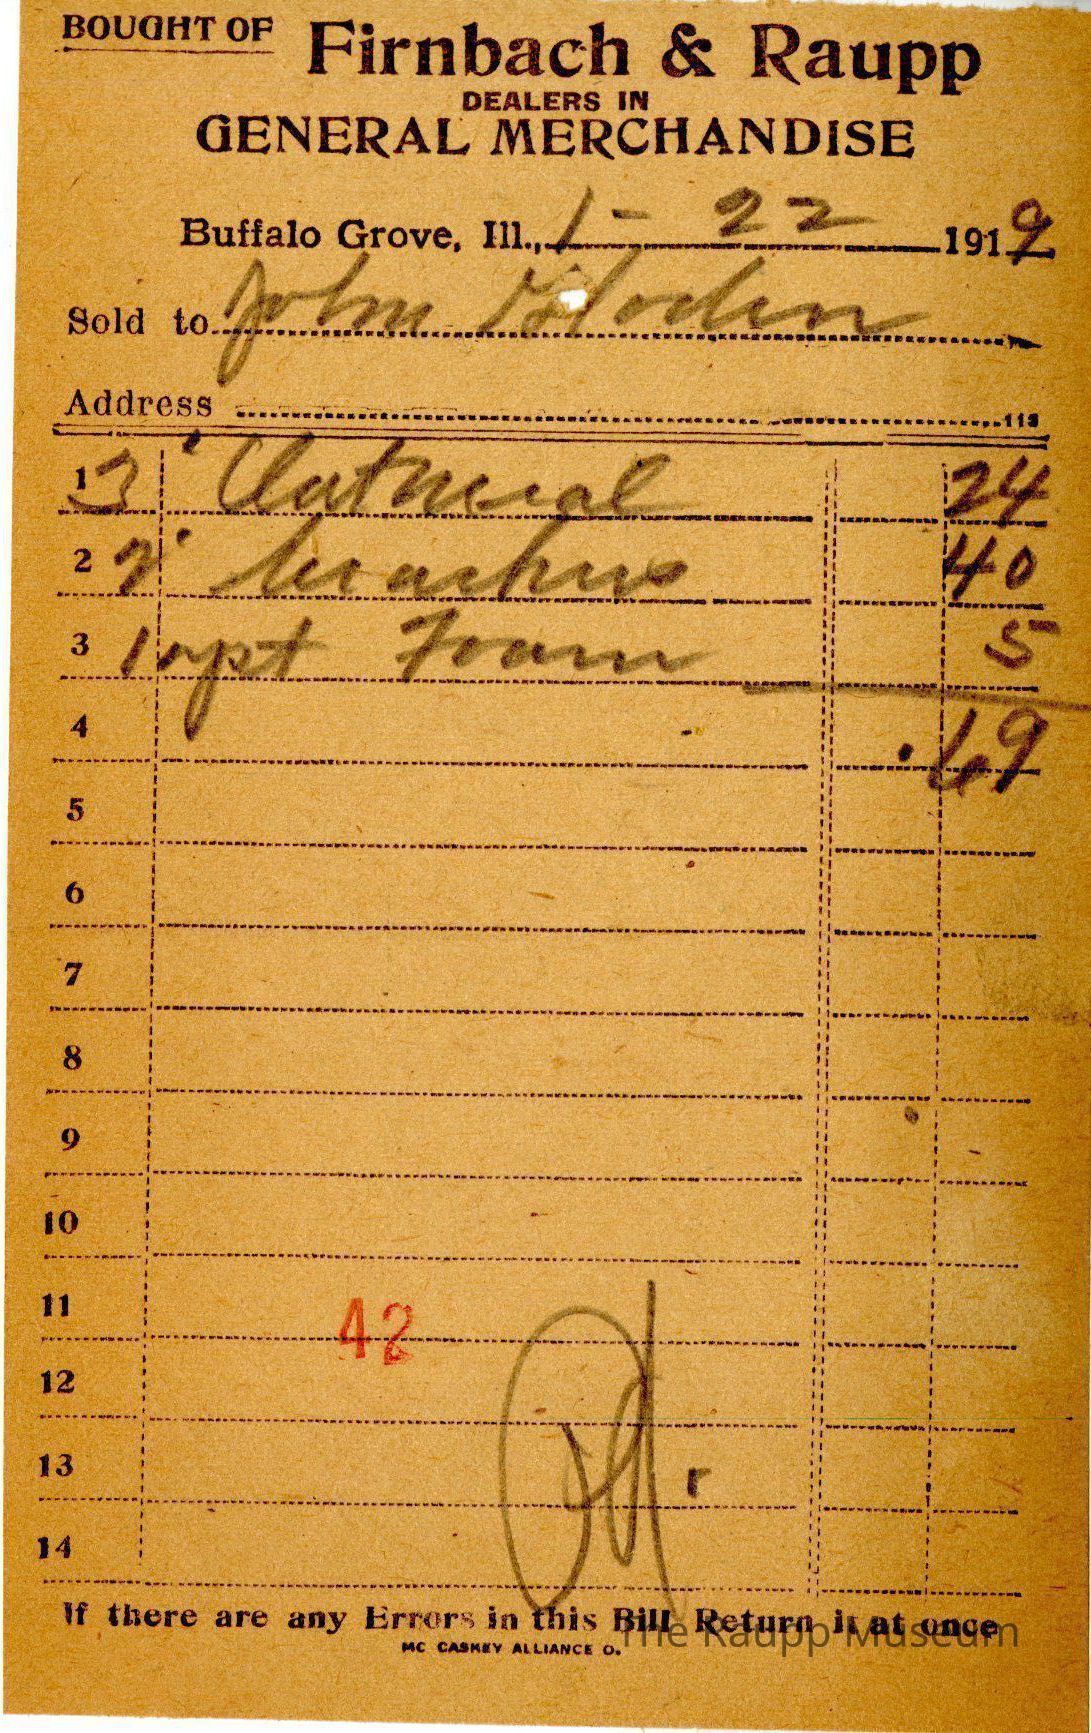 BOUGHT OF Firnbach & Raupp
DEALERS IN
GENERAL MERCHANDISE
Buffalo Grove, Ill., 1 - 22 1919
Sold to John
Address 113
1 3 Oatmeal 24
2 2 40
3 1 Foam 5
4 .69
5
6
7
8
9
10
11
42
12
13 r
14
If there are any Errors in this Bill Return it at once
The Raupp Museum
MC CASKEY ALLIANCE O.